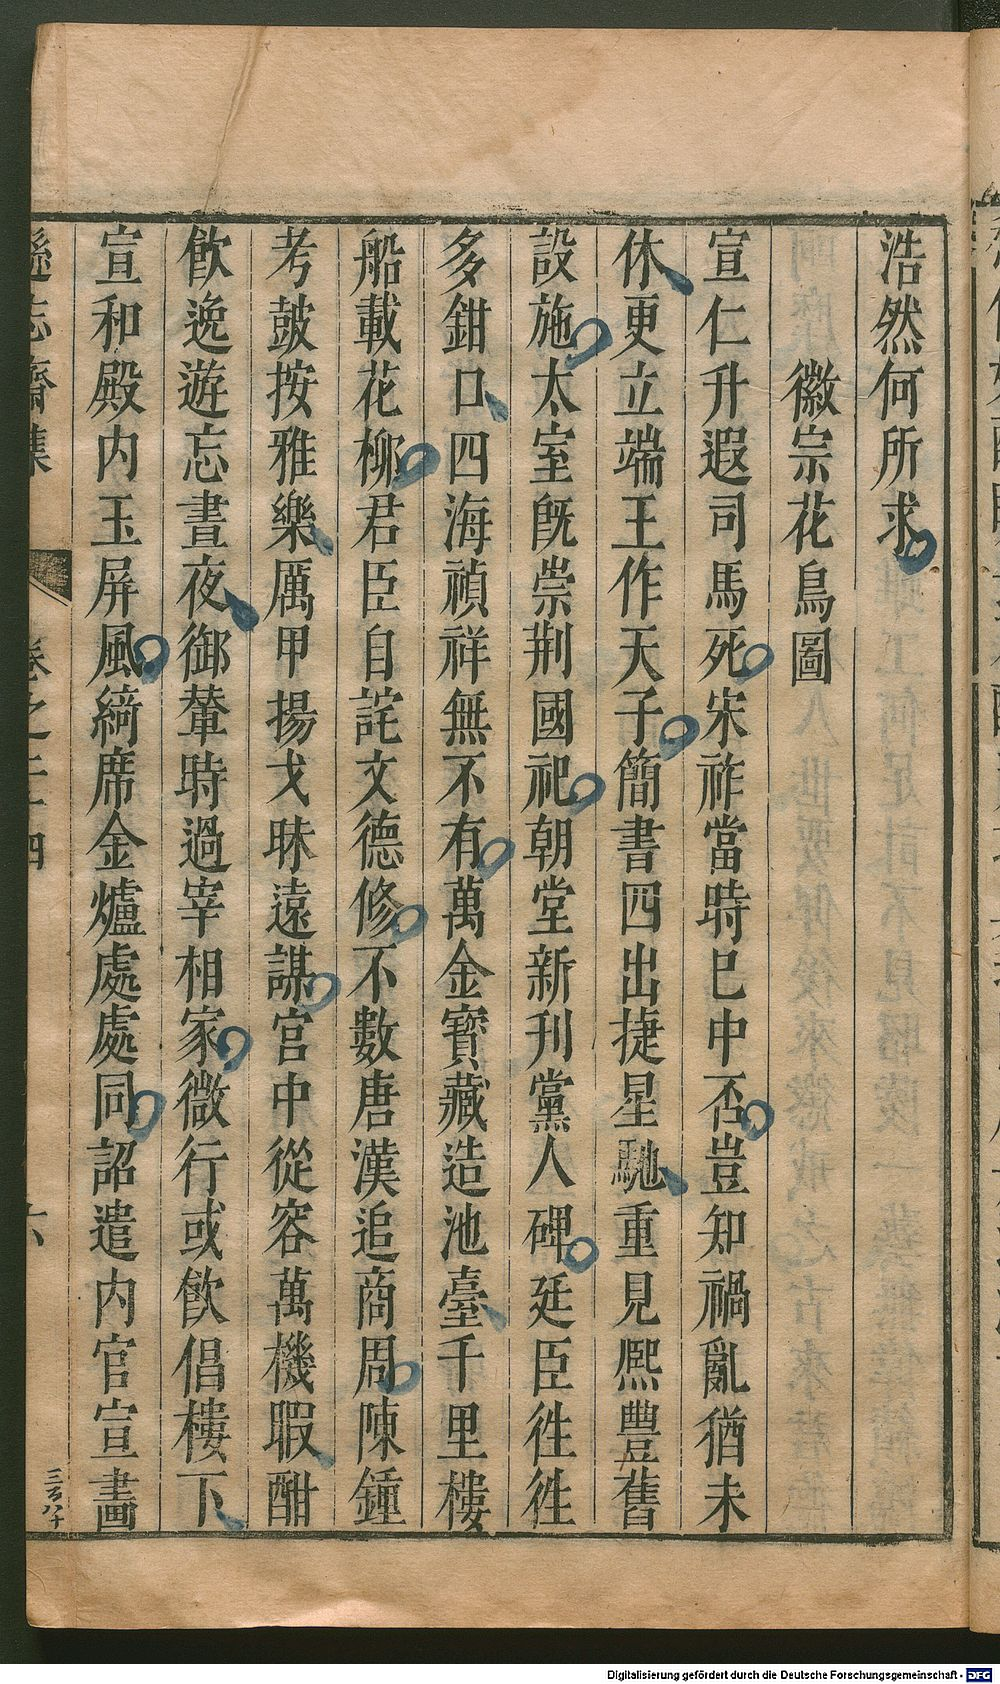 浩然何所求
徽宗花鳥圖
宣仁升遐司馬死宋祚當時巳中否豈知禍亂猶未
休更立端王作天子簡書四出捷星馳重見熙豐舊
設施太室旣崇荆國祀朝堂新刊黨人碑廷臣徃徃
多鉗口四海禎祥無不有萬金寶藏造池臺千里樓
船載花柳君臣自詫文德修不數唐漢追商周陳鍾
考鼓按雅樂厲甲揚戈昧遠謀宫中從容萬機暇酣
飲逸遊忘晝夜御輦時過宰相家微行或飲倡樓下
宣和殿内玉屏風綺席金爐處處同詔遣内官宣畫
遜志齋集
卷之二十四
六
三百八十
Digitalisierung gefördert durch die Deutsche Forschungsgemeinschaft - DFG